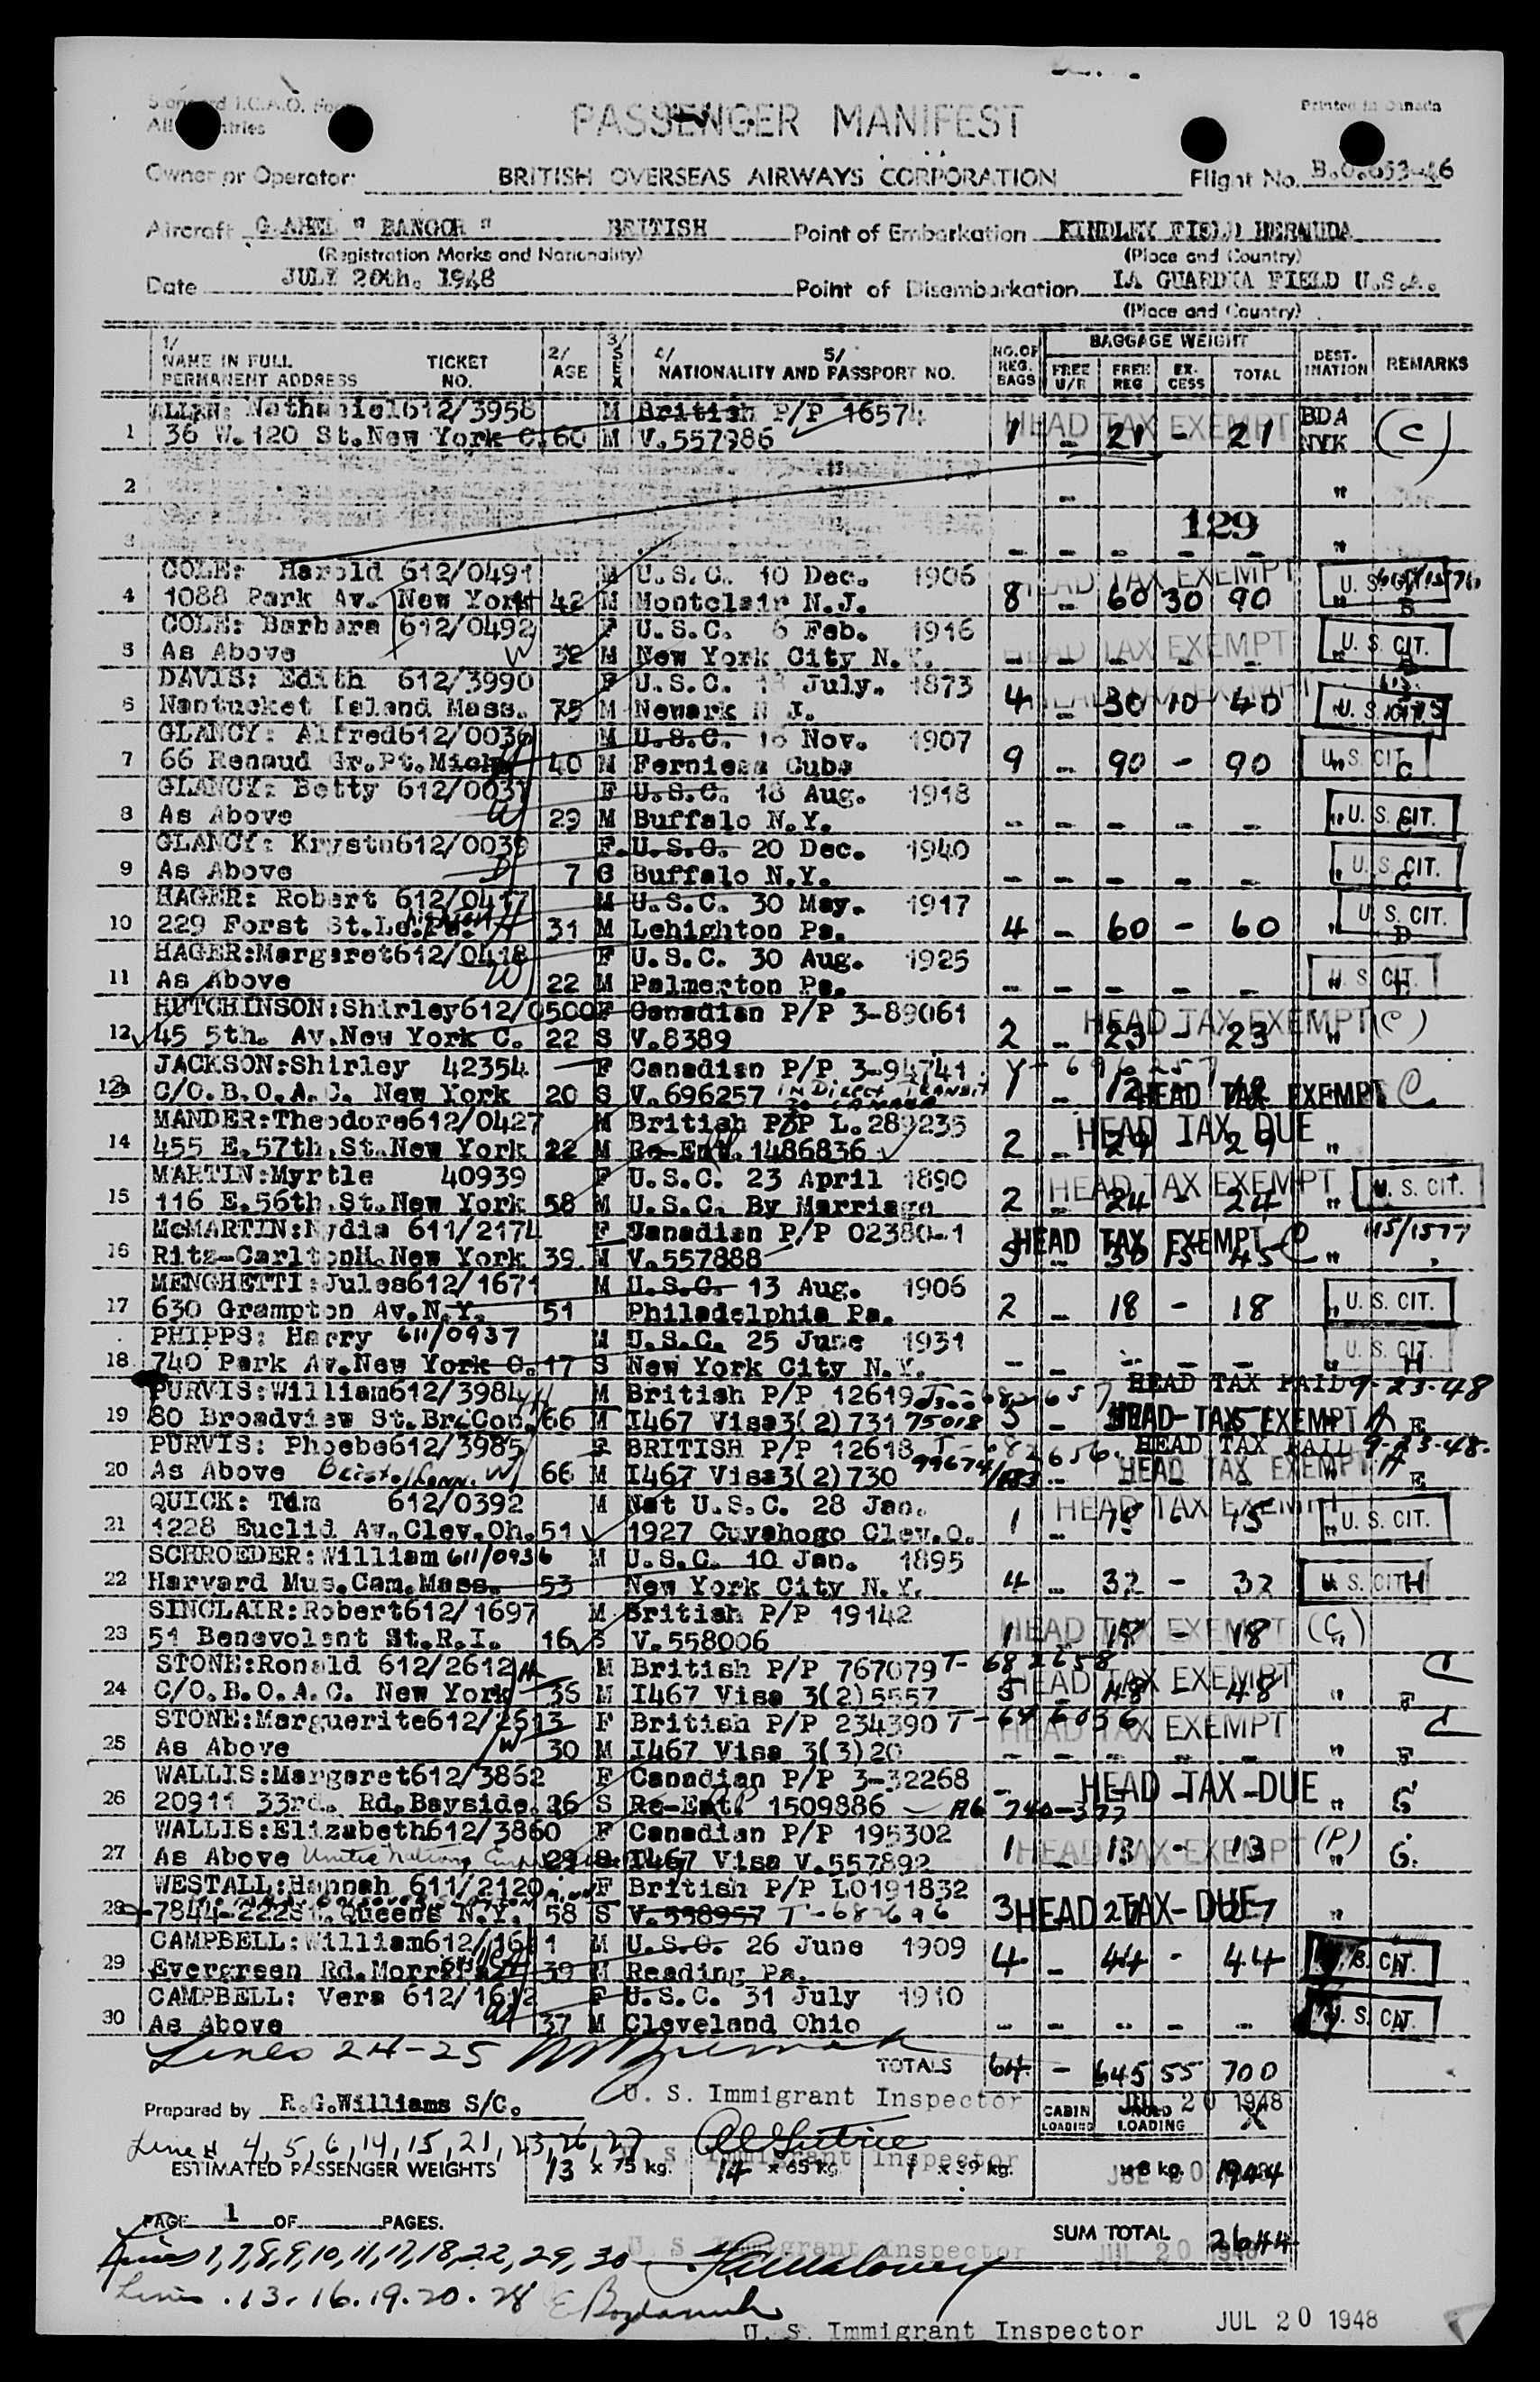 Standard I.C.A.O. Form
All Countries
Printed in Canada
PASSENGER MANIFEST
Owner or Operator: BRITISH OVERSEAS AIRWAYS CORPORATION Flight No. B.O.653-46
Aircraft G AHEL " BANGOR " BRITISH Point of Embarkation KINDLEY FIELD BERMUDA
(Registration Marks and Nationality) (Place and Country)
Date JULY 20th. 1948 Point of Disembarkation LA GUARDIA FIELD U.S.A.
(Place and Country)
1/ NAME IN FULL PERMANENT ADDRESS TICKET NO. 2/ AGE 3/ SEX 4/ 5/ NATIONALITY AND PASSPORT NO. NO. OF REG. BAGS BAGGAGE WEIGHT FREE U/R FREE REG EX-CESS TOTAL DEST-INATION REMARKS
ALLEN: Nathaniel 612/3958 M British P/P 16574 HEAD TAX EXEMPT BDA
1 36 W. 120 St. New York C. 60 M V.557986 1 - 21 - 21 NYK (C)
2 - "
129
3 - - - - - "
COLE: Harold 612/0491 M U.S.C. 10 Dec. 1906 HEAD TAX EXEMPT U. S. CIT.
4 1088 Park Av. New York 42 M Montclair N.J. 8 - 60 30 90 " B
COLE: Barbara 612/0492 F U.S.C. 6 Feb. 1916 HEAD TAX EXEMPT U. S. CIT.
5 As Above W 32 M New York City N.Y. - - - - - "
DAVIS: Edith 612/3990 F U.S.C. 18 July. 1873 HEAD TAX EXEMPT
6 Nantucket Island Mass. 75 M Newark N J. 4 - 30 10 40 " U. S. CIT.
GLANCY: Alfred 612/0036 M U.S.C. 16 Nov. 1907
7 66 Renaud Gr.Pt.Mich. 40 M Ferniesa Cuba 9 - 90 - 90 " U. S. CIT. C
GLANCY: Betty 612/0037 F U.S.C. 18 Aug. 1918
8 As Above W 29 M Buffalo N.Y. - - - - - " U. S. CIT. C
GLANCY: Krystn 612/0038 F U.S.C. 20 Dec. 1940
9 As Above D 7 G Buffalo N.Y. - - - - - " U. S. CIT. C
HAGER: Robert 612/0417 M U.S.C. 30 May. 1917
10 229 Forst St. H 31 M Lehighton Pa. 4 - 60 - 60 " U. S. CIT. D
HAGER: Margaret 612/0418 F U.S.C. 30 Aug. 1925
11 As Above W 22 M Palmerton Pa. - - - - - " U. S. CIT.
HUTCHINSON: Shirley 612/0500 F Canadian P/P 3-89061 HEAD TAX EXEMPT (C)
12 45 5th. Av. New York C. 22 S V.8389 2 - 23 - 23 "
JACKSON: Shirley 42354 F Canadian P/P 3-94741 V-696257
C/O.B.O.A.C. New York 20 S V.696257 IN DIRECT TRANSIT TO CANADA 1 - 12 HEAD TAX EXEMPT C
MANDER: Theodore 612/0427 M British P/P L.289235 HEAD TAX DUE
14 455 E.57th.St.New York 22 M Re-Ent. 1486836 2 - 29 29 "
MARTIN: Myrtle 40939 F U.S.C. 23 April 1890 HEAD TAX EXEMPT
15 116 E.56th.St.New York 58 M U.S.C. By Marriage 2 - 24 - 24 " U. S. CIT.
McMARTIN: Nydia 611/2174 F Canadian P/P 02380-1 HEAD TAX EXEMPT C
16 Ritz-Carlton H. New York 39 M V.557888 5 - 30 15 45 "
MENGHETTI: Jules 612/1671 M U.S.C. 13 Aug. 1906
17 630 Grampton Av.N.Y. 51 Philadelphia Pa. 2 - 18 - 18 " U. S. CIT.
PHIPPS: Harry 611/0937 M U.S.C. 25 June 1931
18 740 Park Av.New York C. 17 S New York City N.Y. - - - - - " U. S. CIT. H
PURVIS: William 612/3984 M British P/P 12619 HEAD TAX PAID 9-23-48
19 80 Broadview St.Br.Con. 66 M I467 Visa 3(2)731 75018 5 - HEAD TAX EXEMPT A E
PURVIS: Phoebe 612/3985 F BRITISH P/P 12618 T-682656 HEAD TAX PAID 9-23-48.
20 As Above Bristol Conn. W 66 M I467 Visa 3(2)730 HEAD TAX EXEMPT A E
QUICK: Tom 612/0392 M Nat U.S.C. 28 Jan. HEAD TAX EXEMPT
21 1228 Euclid Av.Clev.Oh. 51 1927 Cuyahogo Clev.O. 1 - 15 - 15 " U. S. CIT.
SCHROEDER: William 611/0936 M U.S.C. 10 Jan. 1895
22 Harvard Mus.Cam.Mass. 53 New York City N.Y. 4 - 32 - 32 U. S. CIT. H
SINCLAIR: Robert 612/1697 M British P/P 19142 HEAD TAX EXEMPT (C)
23 51 Benevolent St.R.I. 16 S V.558006 1 18 - 18 "
STONE: Ronald 612/2612 H M British P/P 767079 T-682658 HEAD TAX EXEMPT C
24 C/O.B.O.A.C. New York 35 M I467 Visa 3(2)5557 5 - 48 48 " F
STONE: Marguerite 612/2613 F British P/P 234390 HEAD TAX EXEMPT C
25 As Above W 30 M I467 Visa 3(3)20 - - - - - " F
WALLIS: Margaret 612/3862 F Canadian P/P 3-32268 HEAD TAX DUE
26 20911 33rd. Rd.Bayside. 26 S Re-Ent. 1509886 - - - - " G
WALLIS: Elizabeth 612/3860 F Canadian P/P 195302 HEAD TAX EXEMPT (P)
27 As Above United Nations 29 S I467 Visa V.557892 1 - 13 - 13 " G.
WESTALL: Hannah 611/2120 F British P/P LO191832 HEAD TAX DUE
28 7844-222St. Queens N.Y. 58 S V.558957 T-682696 3 27 - 27 "
CAMPBELL: William 612/1611 M U.S.C. 26 June 1909
29 Evergreen Rd. 39 M Reading Pa. 4 - 44 - 44 U. S. CIT.
CAMPBELL: Vera 612/1612 F U.S.C. 31 July 1910
30 As Above W 37 M Cleveland Ohio - - - - - U. S. CIT.
Lines 24-25
TOTALS 64 - 645 55 700
U. S. Immigrant Inspector JUL 20 1948
Prepared by R.G.Williams S/C. CABIN LOADING LOADING X
Lines 4, 5, 6, 14, 15, 21, 23, 26, 27 U. S. Immigrant Inspector
ESTIMATED PASSENGER WEIGHTS 13 x 75 kg. 14 x 65 kg. 1 x 39 kg. x 8 kg. 1944
JUL 20 1948
PAGE 1 OF PAGES.
SUM TOTAL 2644
U. S. Immigrant Inspector JUL 20 1948
Lines 1,7,8,9,10,11,17,18,22,29,30
Lines . 13. 16. 19. 20. 28
U. S. Immigrant Inspector JUL 20 1948